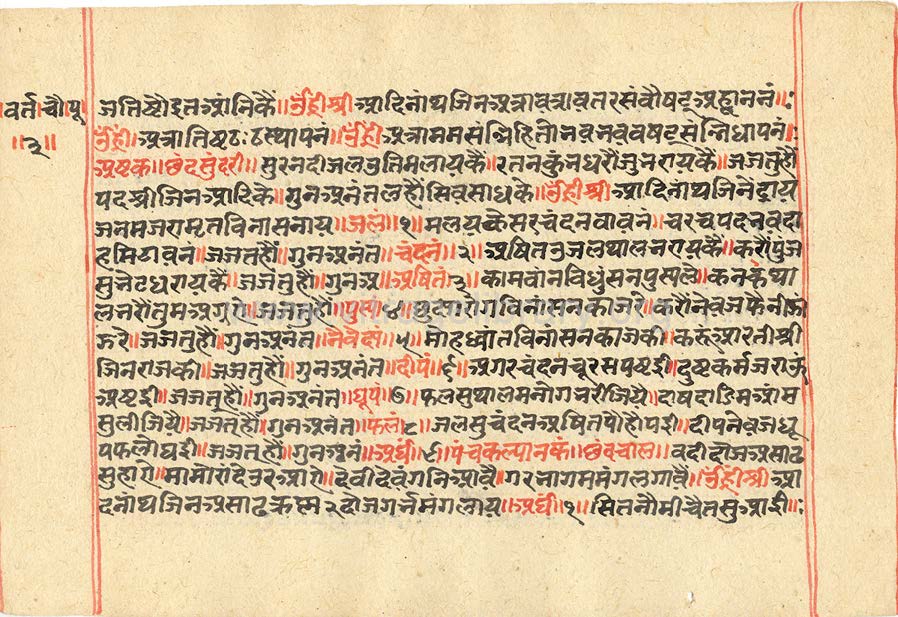 वर्त चौ पू
॥३॥
जतिष्टौइतआंनिकैं॥ॐह्रीश्री आदिनांथजिनअत्रावत्रावतरसंवौषट्अह्वाननं॥
ॐह्रीं॥अत्रातिष्टठःठस्थापनं॥ॐह्रीं अत्राममसंन्निहितोभवभववषट्सन्निधापनं॥
अष्टक॥छंदसुंदरी॥सुरनदीजलदुतिमलायकैं॥रतनकुंनधरौंजुनरायकैं॥जजतुहौं
पदश्रीजिनआदिकै॥गुनअनंतलहौसिवसाधकै॥ॐह्रीश्री आदिनांथजिनेंद्राय
जनमजरामृतविनासनाय॥जलं॥१॥मलयकेसरचंदनवावनं॥चरचपदनवदा
हमिटावनं॥जजतहौं॥गुनअनंत॥चंदनं॥२॥अषितउजलथालनरायकैं॥करौंपुंज
सुनेटधरायकैं॥जजतुहौं॥गुनअ॥अषितं३॥कामवांनविधुंसनपुस्पले॥कनकथा
लनरौंतुमअगरो॥जजतुहौं॥पुस्प॥४॥षुदसरोगविनांसनकाजरे॥करौंनेवजफेनीता
जरे॥जजतुहौं॥गुनअनंत॥नैवेद्यं॥५॥मोहध्वांतविनांसनकाजकी॥करूंआरतीश्री
जिनराजकी॥जजतुहौं॥गुनअनंत॥दीपं॥६॥अगरचंदनचूरसपष्टही॥दुष्टकर्मजराऊं
अष्टही॥जजतुहौं॥गुनअनंत॥धूपं॥७॥फलसुथालमनोगनरीजियै॥दाषदाडिमआंम
सुलीजियै॥जजतुहौं॥गुनअनंत॥फलं८॥जलसुचंदनअषितपौहौपही॥दीपनेवजधू
पफलौघही॥जजतहौं॥गुनअनं॥अर्घी॥९॥पंचकल्पानकं॥छंदचाल॥वदीदोजअसाढ
सुहारो॥मामोरांदेउरआरो॥देवीदेवंगनिआवै॥गरनागममंगलगावै॥ॐह्रीश्री आ
दनांथजिनअसाढक्रस्न२दोजगर्नमंगलाय॥अर्घी॥१॥सितनौमीचैतसुआही॥